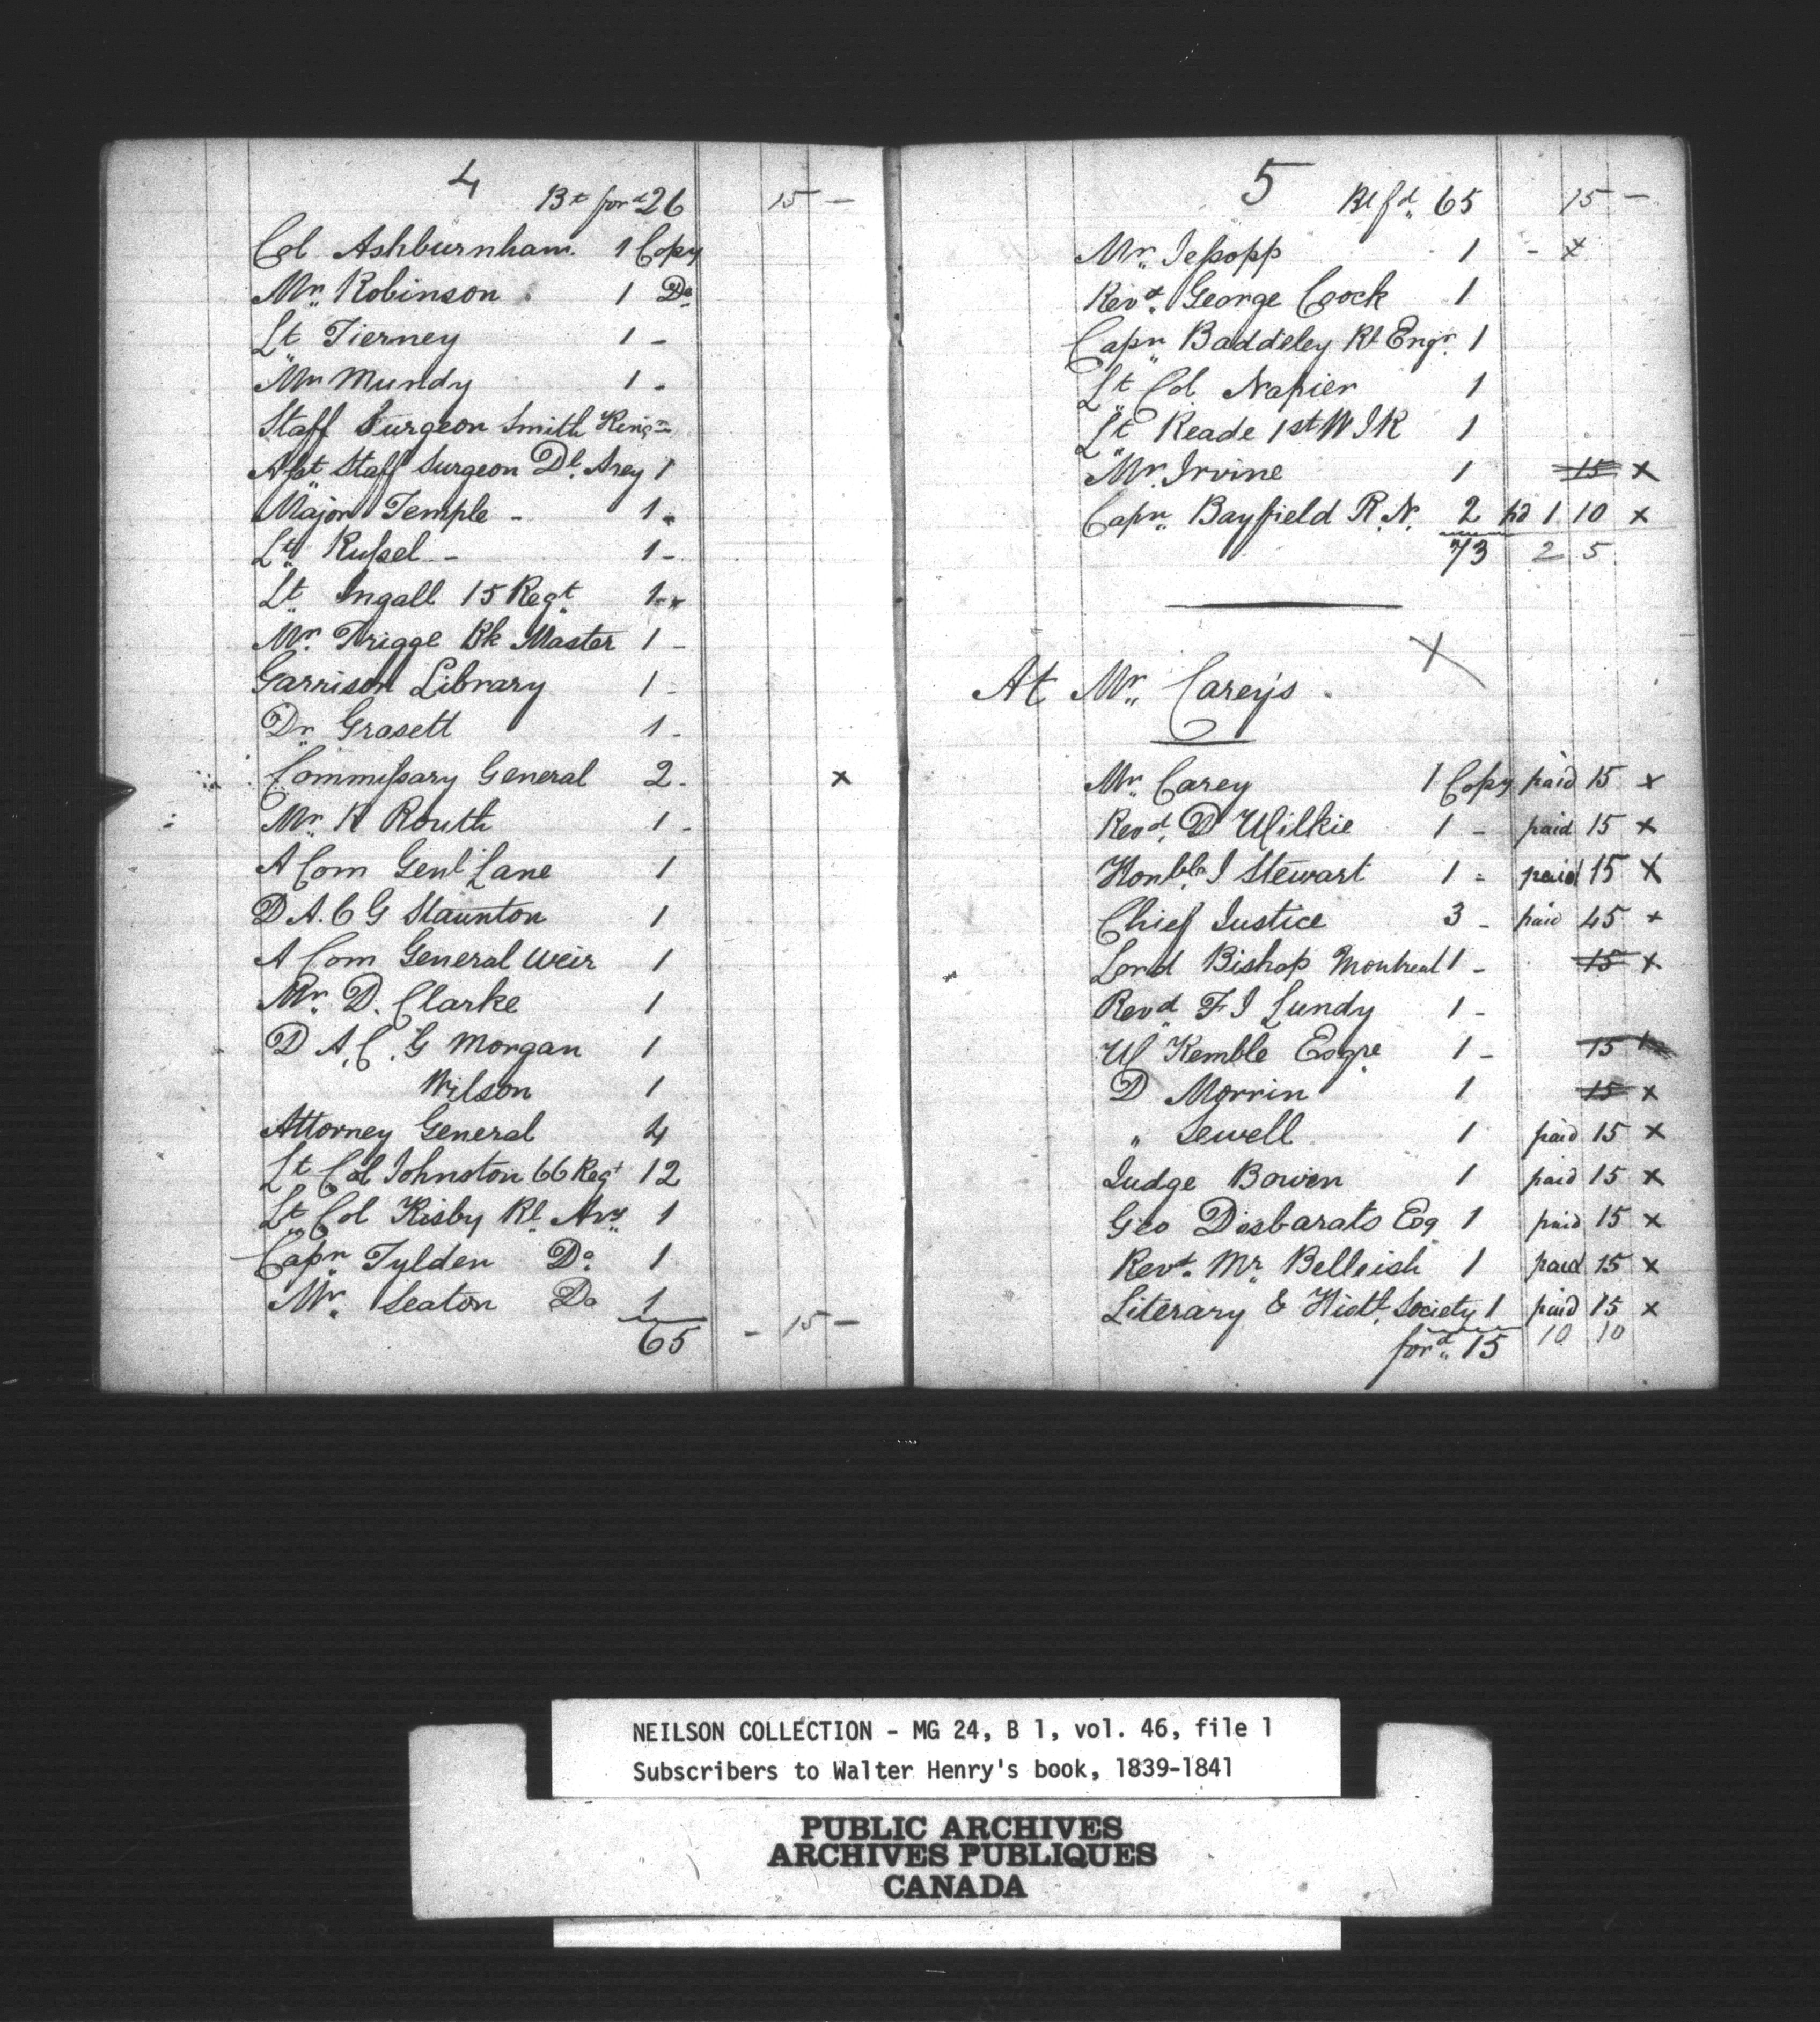 4
Bt ford 26 15 –
Col Ashburnham. 1 Copy
Mr. Robinson 1 Do
Lt Tierney 1 –
Mr Mundy 1 -
Staff Surgeon Smith
Asst Staff Surgeon Dl. Arey 1
Major Temple - 1 -
Lt. Russel - 1 -
Lt. Ingall 15 Regt. 1 -
Mr. Trigge Bk Master 1 -
Garrison Library 1 -
Dr. Grasett 1 -
Commissary General 2 - x
Mr. R Routh 1 -
A Com Genl Lane 1
D A. C G Staunton 1
A Com General Weir 1
Mr. D. Clarke 1
D A. C. G Morgan 1
Wilson 1
Attorney General 4
Lt Col Johnston 66 Regt 12
Lt. Col Kisby Rl. Ary 1
Capn. Tylden Do. 1
Mr. Seaton Do 1
65 - 15 –
5
Bt fd. 65 15 –
Mr. Jessopp 1 - x
Revd. George Cook 1
Capn Baddeley Rl Engr. 1
Lt Col Napier 1
Lt Reade 1st W I R 1
Mr. Irvine 1 15 x
Capn. Bayfield R.N. 2 pd 1 10 x
73 2 5
x
At Mr. Carey's.
Mr. Carey 1 Copy paid 15 x
Revd. D Wilkie 1 – paid 15 x
Honble. J Stewart 1 - paid 15 x
Chief Justice 3 - paid 45 x
Lord Bishop Montreal 1 - 15 x
Revd F J Lundy 1 -
W Kemble Esqre 1 - 15
D Morrin 1 15 x
" Sewell 1 paid 15 x
Judge Bowen 1 paid 15 x
Geo Desbarats Esq 1 paid 15 x
Revd. Mr. Belleish 1 paid 15 x
Literary & Histl. Society 1 paid 15 x
ford. 15 10 10
NEILSON COLLECTION - MG 24, B 1, vol. 46, file 1
Subscribers to Walter Henry's book, 1839-1841
PUBLIC ARCHIVES
ARCHIVES PUBLIQUES
CANADA